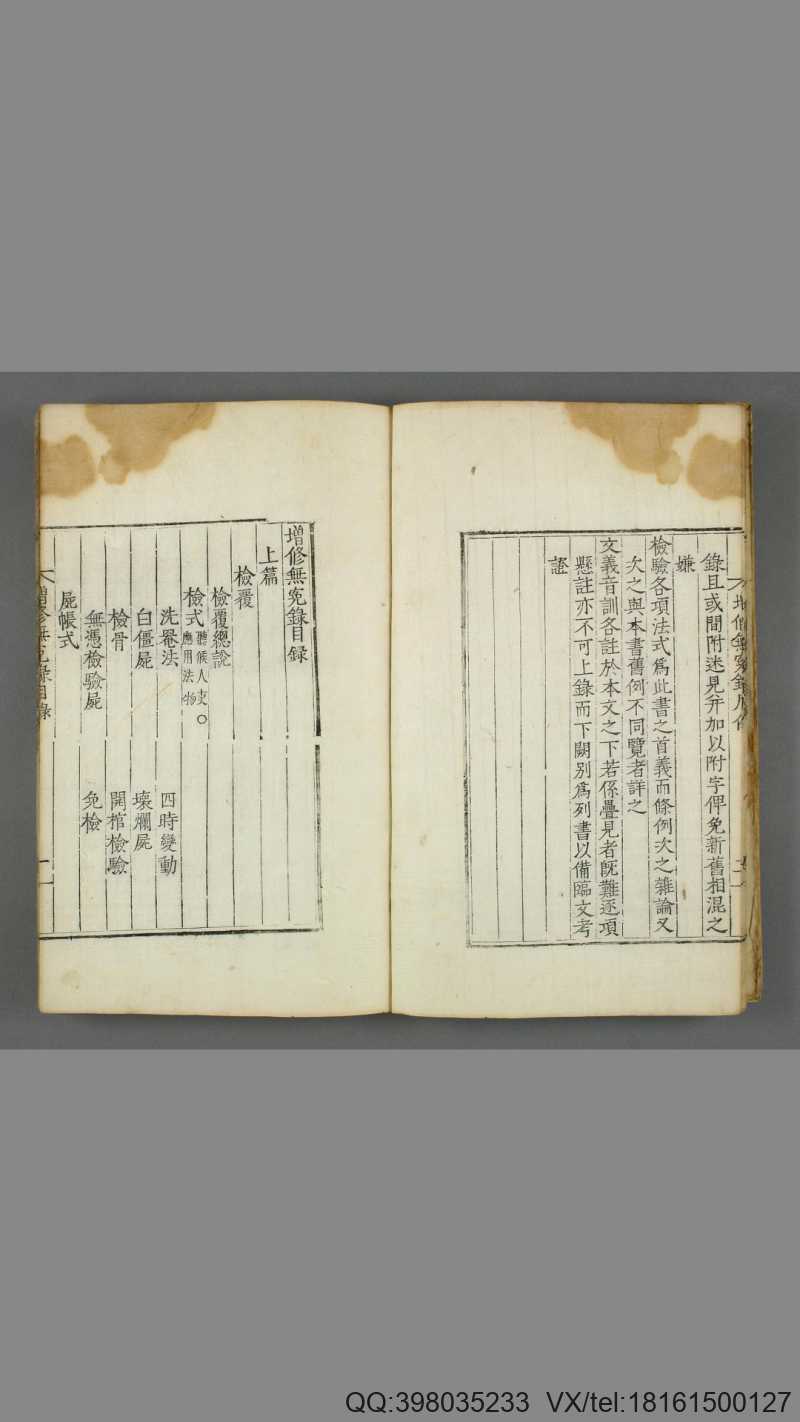 錄且或間附迷見并加以附字俾免新舊相混之
嫌
檢驗各項法式爲此書之首義而條例次之雜論又
次之與本書舊例不同覽者詳之
文義音訓各註於本文之下若係疊見者旣難逐項
懸註亦不可上錄而下闕別爲列書以備臨文考
證
增修無寃錄目録
上篇
檢覆
檢覆總說
檢式 聽候人吏○應用法物
洗罨法 四時變動
白僵屍 壞爛屍
檢骨 開棺檢驗
無憑檢驗屍 免檢
屍帳式
增修無寃錄目錄
QQ:398035233 VX/tel:18161500127